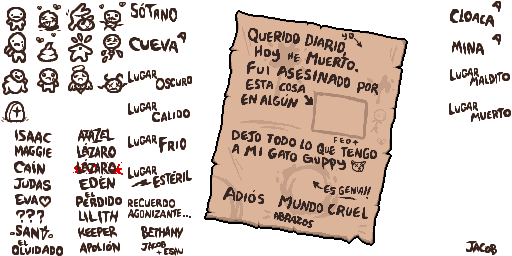 SÓTANO
CUEVA
LUGAR OSCURO
LUGAR CALIDO
LUGAR FRIO
LUGAR ESTÉRIL
RECUERDO AGONIZANTE...
ISAAC
MAGGIE
CAÍN
JUDAS
EVA
???
SANSÓN
EL OLVIDADO
AZAZEL
LÁZARO
LÁZARO
EDÉN
EL PERDIDO
LILITH
KEEPER
APOLIÓN
BETHANY
JACOB + ESAU
QUERIDO DIARIO,
yo
HOY HE MUERTO.
FUI ASESINADO POR
ESTA COSA
EN ALGÚN
FEO+
DEJO TODO LO QUE TENGO
A MI GATO GUPPY
ES GENIAL!!
ADIÓS MUNDO CRUEL
ABRAZOS
CLOACA
MINA
LUGAR MALDITO
LUGAR MUERTO
JACOB